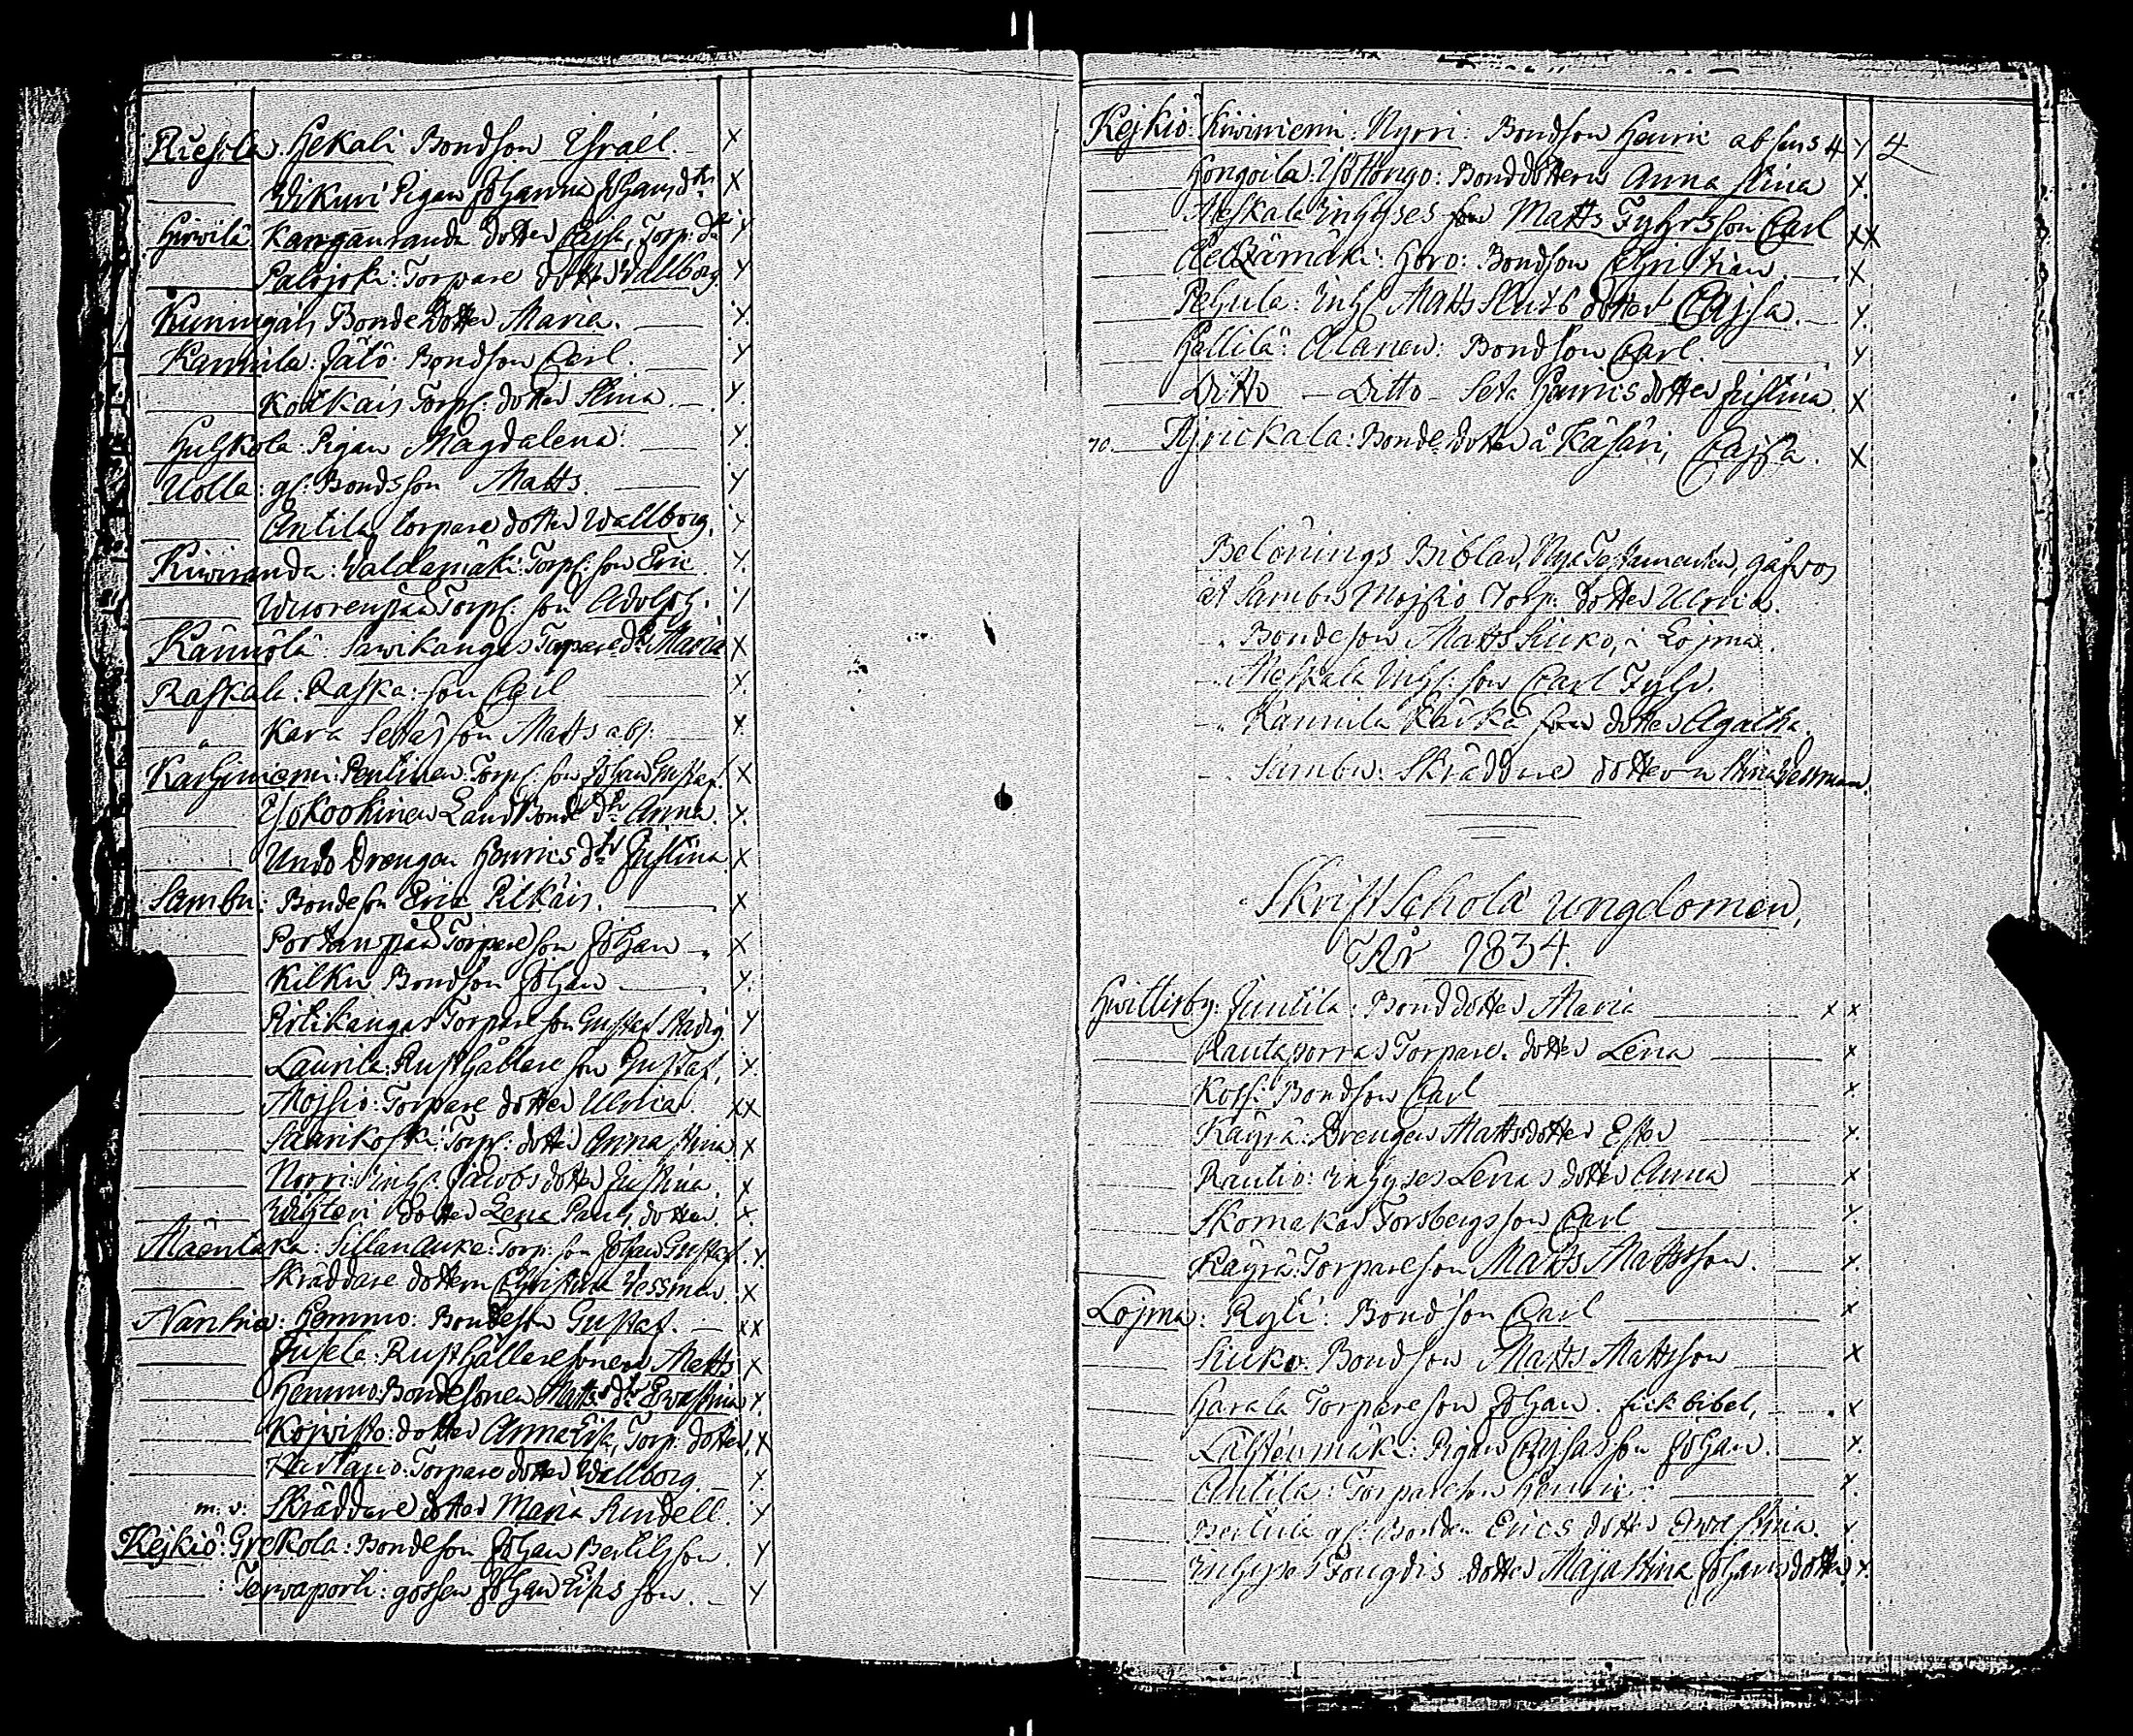 Riesola: Hekali Bondson Israel. x
Wikuri Pigan Johanna Johans dtr x
Hirvilä Kangauranda dotter Cajsa, Torp: dtr x
Palojoki: Torpare dotter Wallborg. x
Kuningais Bonde dotter Maria. x
Kannila: Jätö: Bondson Carl. x
Kotkais Torp: dotter Stina. x
Huhkola: Pigan Magdalena. x
Uolla: gl: Bondsson Matts. x
Antila torpare dotter Wallborg. x
Kiwiranda: Waldamäki: Torp: son Eric. x
Wuorenpää Torp: son Adolph. x
Kännölä: Sawikangas Torpare dtr Maria x
Raskala: Raska: son Carl x
Kara Settas son Matts abs: x
Karhiniemi: Pentinen: Torp: son Johan Gustaf. x
Isokoohinen Landbonde dr Anna. x
Undo Drengen Henrics dtr Justina x
Sambu: Bondeson Eric Pilkäis. x
Portanpää Torpare son Johan x
Kilku Bondson Johan x
Ritikangas Torpare son Gustaf Stadig. x
Laurila: Rusthållare son Gustaf. x
Mojsio: Torpare dotter Ulrica. xx
Saarikoski: Torp: dotter Anna Stina x
Norri: Inh: Jacobs dotter Justina. x
Wähteri dotter Lena Pauls dotter. x
Mäentaka: Sillanauke: Torp: son Johan Gustaf. x
Skräddare dottern Christina Wessman. x
Nanhia: Hemmo: Bondeson Gustaf. xx
Jusela: Rusthållaresonen Matts x
Hemmo: Bondesonen Matts dtr Ewa Stina x
Kojwisto: dotter Anna Lisa, Torp: dotter, x
Torpare dotter Wallborg. x
m. v. Skräddare dotter Maria Rundell. x
Kejkiö: Grekola: Bondeson Johan Bertilsson. x
: Terwaporti: gossen Johan Eliasson. x
Kejkiö: Kiwiniemi: Nyrri: Bondson Henric absens 4 x 4
Hongoila: Isottongo: Bonddottern Anna Stina x
Meskala Inhyses Matts Fyhrs son Carl xx
Horo: Bondson Christian. x
Pehula: Inh: Matts dotter Cajsa. x
Hellilä: Alanen: Bondson Carl. x
Ditto - Ditto - Henrics dotter Justina. x
70. Tyrickala: Bonde dotter å Käsäri, Cajsa. x
Belönings Biblar, Nya Testamenten, gåfvos
åt Sambu Mojsio Torp: dotter Ulrica.
-" Bondeson Matts Siuko, i Lojma.
-" Meskala Inh: son Carl Fyhr.
-" Kannila dotter Agatha.
-" Sambu: Skräddare dottern Stina Wessman.
Skrift Schola ungdomen,
År 1834.
Hwittisby: Juntila: Bonddotter Maria x x
Rautaporras Torpare dotter Lena x
Koss: Bondson Carl x
Käyrä: Drengen Matts dotter Ester x
Rautio: Inhyses Lenas dotter Anna x
Skomakar Forsbergs son Carl x
Käyrä: Torpareson Matts Mattsson. x
Lojma: Ryli: Bondson Carl x
Siuko: Bondson Matts Mattsson x
Harala Torpareson Johan. fick bibel, x
Lähtenmäki: Pigan Cajsas son Johan. x
Antila: Torpareson Henric. x
Bertula gl: Bonden Erics dotter Ewa Stina. x
Inhyses dotter Maja Stina Johans dotter x